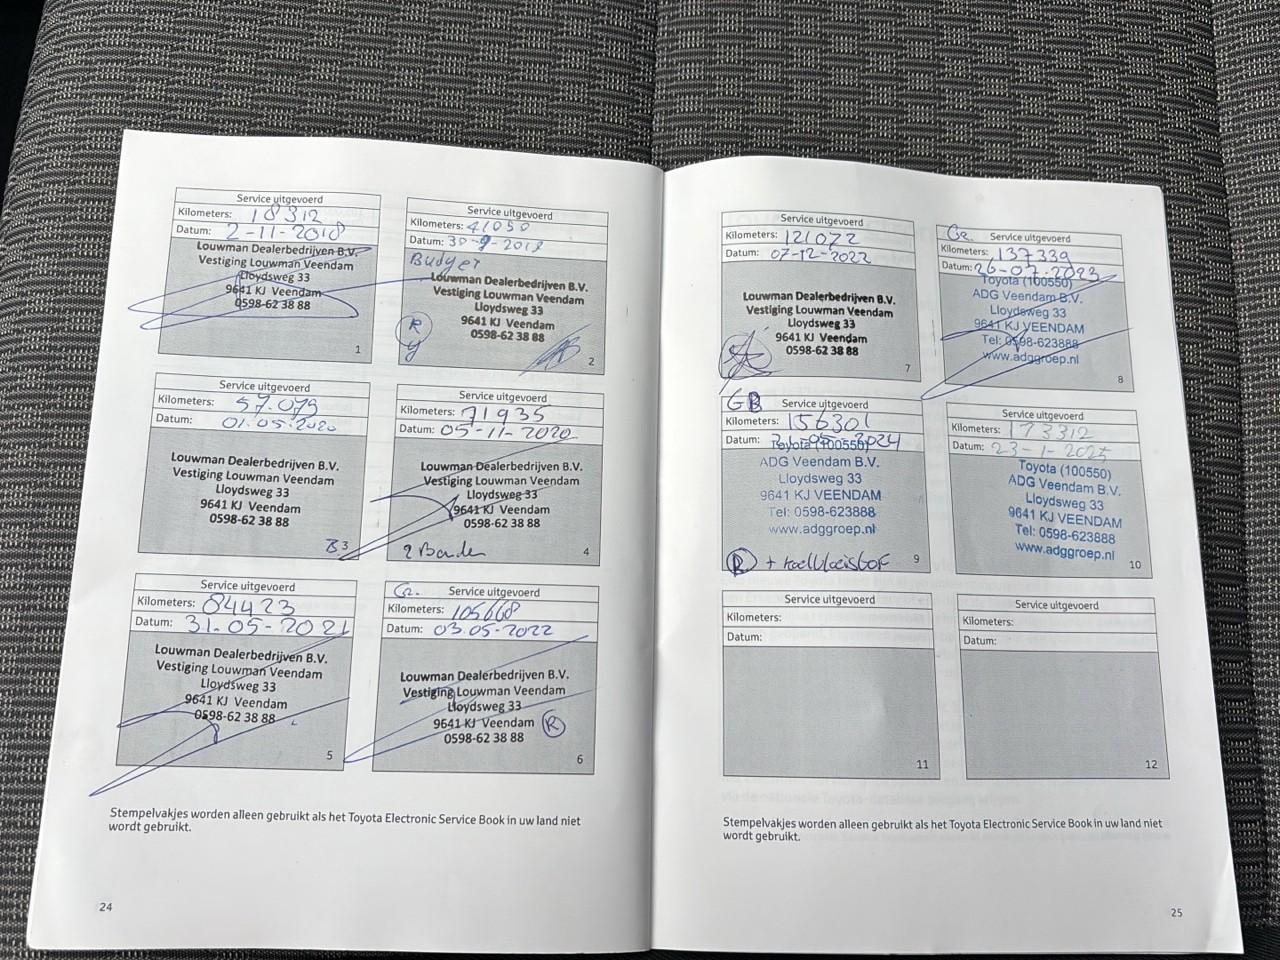 Service uitgevoerd
Kilometers: 18312
Datum: 2-11-2018
Louwman Dealerbedrijven B.V.
Vestiging Louwman Veendam
Lloydsweg 33
9641 KJ Veendam
0598-62 38 88
1
Service uitgevoerd
Kilometers: 41050
Datum: 30-9-2019
Budget
Louwman Dealerbedrijven B.V.
Vestiging Louwman Veendam
Lloydsweg 33
9641 KJ Veendam
0598-62 38 88
R
2
Service uitgevoerd
Kilometers: 57.079
Datum: 01.05.2020
Louwman Dealerbedrijven B.V.
Vestiging Louwman Veendam
Lloydsweg 33
9641 KJ Veendam
0598-62 38 88
B 3
Service uitgevoerd
Kilometers: 71935
Datum: 05-11-2020
Louwman Dealerbedrijven B.V.
Vestiging Louwman Veendam
Lloydsweg 33
9641 KJ Veendam
0598-62 38 88
2 Banden 4
Service uitgevoerd
Kilometers: 84423
Datum: 31.05-2021
Louwman Dealerbedrijven B.V.
Vestiging Louwman Veendam
Lloydsweg 33
9641 KJ Veendam
0598-62 38 88
5
Gr. Service uitgevoerd
Kilometers: 105668
Datum: 03.05-2022
Louwman Dealerbedrijven B.V.
Vestiging Louwman Veendam
Lloydsweg 33
9641 KJ Veendam R
0598-62 38 88
6
Stempelvakjes worden alleen gebruikt als het Toyota Electronic Service Book in uw land niet
wordt gebruikt.
24
Service uitgevoerd
Kilometers: 121072
Datum: 07-12-2022
Louwman Dealerbedrijven B.V.
Vestiging Louwman Veendam
Lloydsweg 33
9641 KJ Veendam
0598-62 38 88
7
Gr. Service uitgevoerd
Kilometers: 137339
Datum: 26-07-2023
Toyota (100550)
ADG Veendam B.V.
Lloydsweg 33
9641 KJ VEENDAM
Tel: 0598-623888
www.adggroep.nl
8
GB Service uitgevoerd
Kilometers: 156301
Datum: 2024
Toyota (100550)
ADG Veendam B.V.
Lloydsweg 33
9641 KJ VEENDAM
Tel: 0598-623888
www.adggroep.nl
R + koelvloeistof 9
Service uitgevoerd
Kilometers: 173312
Datum: 23-1-2025
Toyota (100550)
ADG Veendam B.V.
Lloydsweg 33
9641 KJ VEENDAM
Tel: 0598-623888
www.adggroep.nl
10
Service uitgevoerd
Kilometers:
Datum:
11
Service uitgevoerd
Kilometers:
Datum:
12
Stempelvakjes worden alleen gebruikt als het Toyota Electronic Service Book in uw land niet
wordt gebruikt.
25